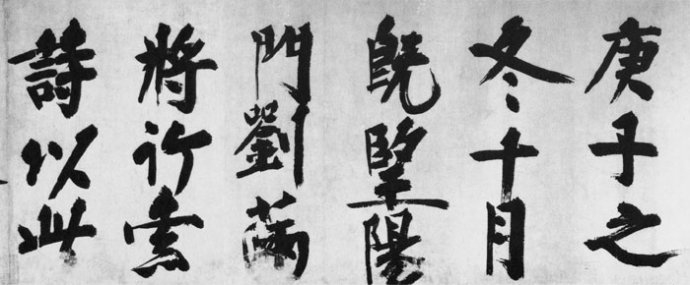 庚子之
冬十月
既朢陽
門劉
將行索
詩以此